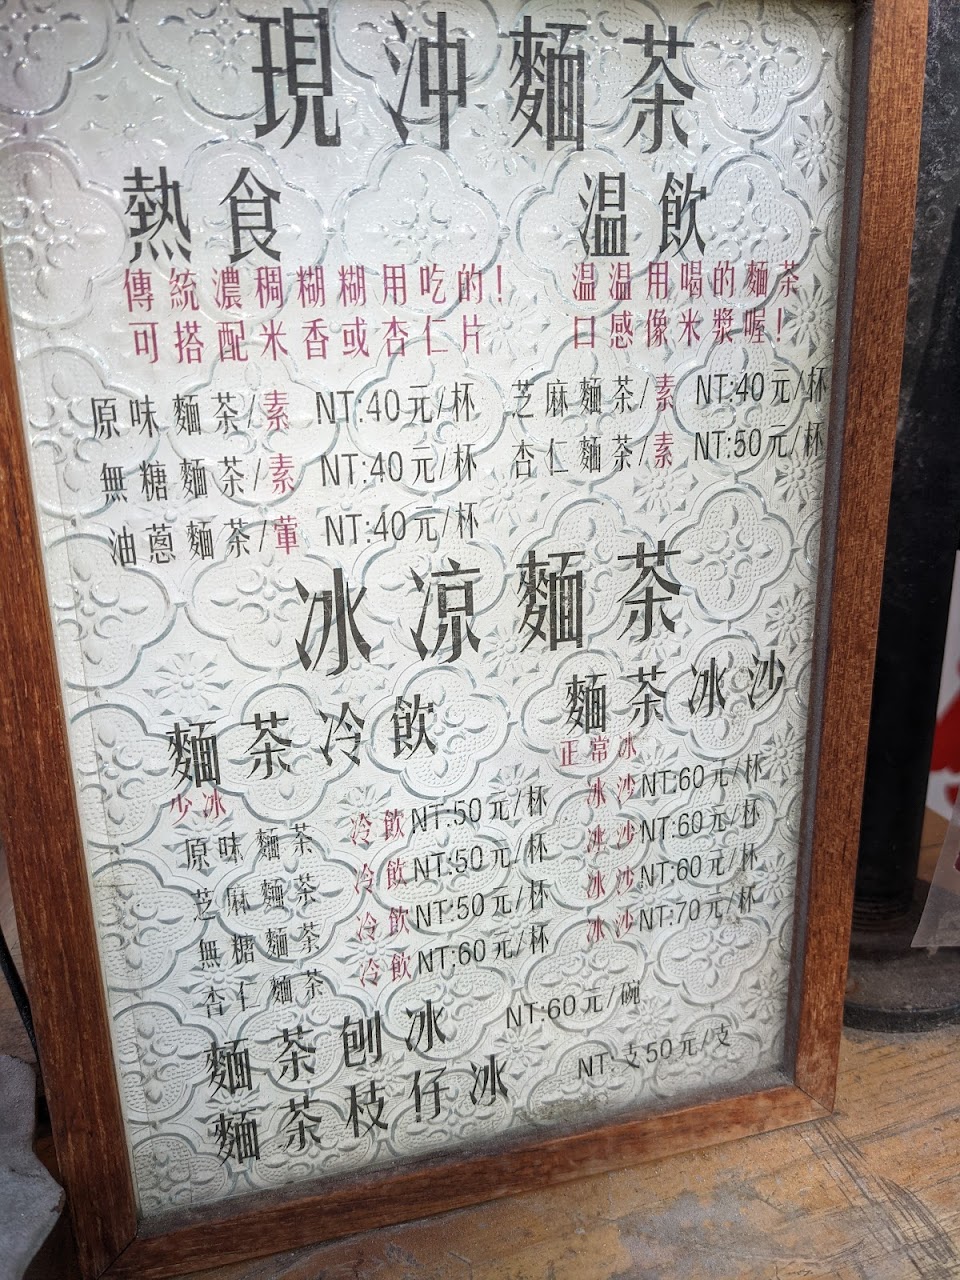 現沖麵茶
熱食
傳統濃稠糊糊用吃的!
可搭配米香或杏仁片
原味麵茶/素 NT:40元/杯
無糖麵茶/素 NT:40元/杯
油蔥麵茶/葷 NT:40元/杯
温飲
温温用喝的麵茶
口感像米漿喔!
芝麻麵茶/素 NT:40元/杯
杏仁麵茶/素 NT:50元/杯
冰涼麵茶
麵茶冷飲
少冰
麵茶冰沙
正常冰
原味麵茶 冷飲NT:50元/杯 冰沙NT:60元/杯
芝麻麵茶 冷飲NT:50元/杯 冰沙NT:60元/杯
無糖麵茶 冷飲NT:50元/杯 冰沙NT:60元/杯
杏仁麵茶 冷飲NT:60元/杯 冰沙NT:70元/杯
麵茶刨冰 NT:60元/碗
麵茶枝仔冰 NT:支50元/支